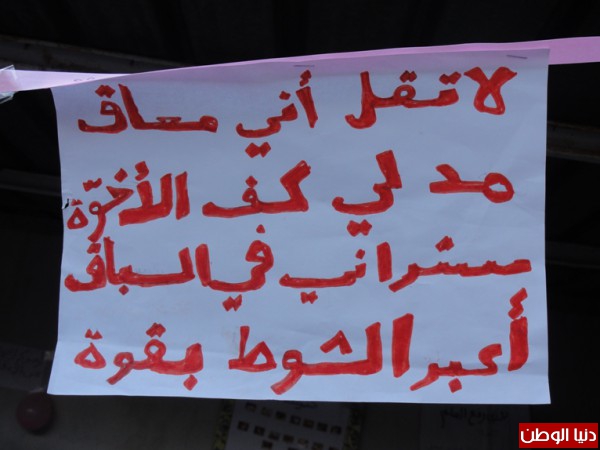 لا تقل أني معاق
مد لي كف الأخوّة
ستراني في السباق
أعبر الشوط بقوة
دنيا الوطن